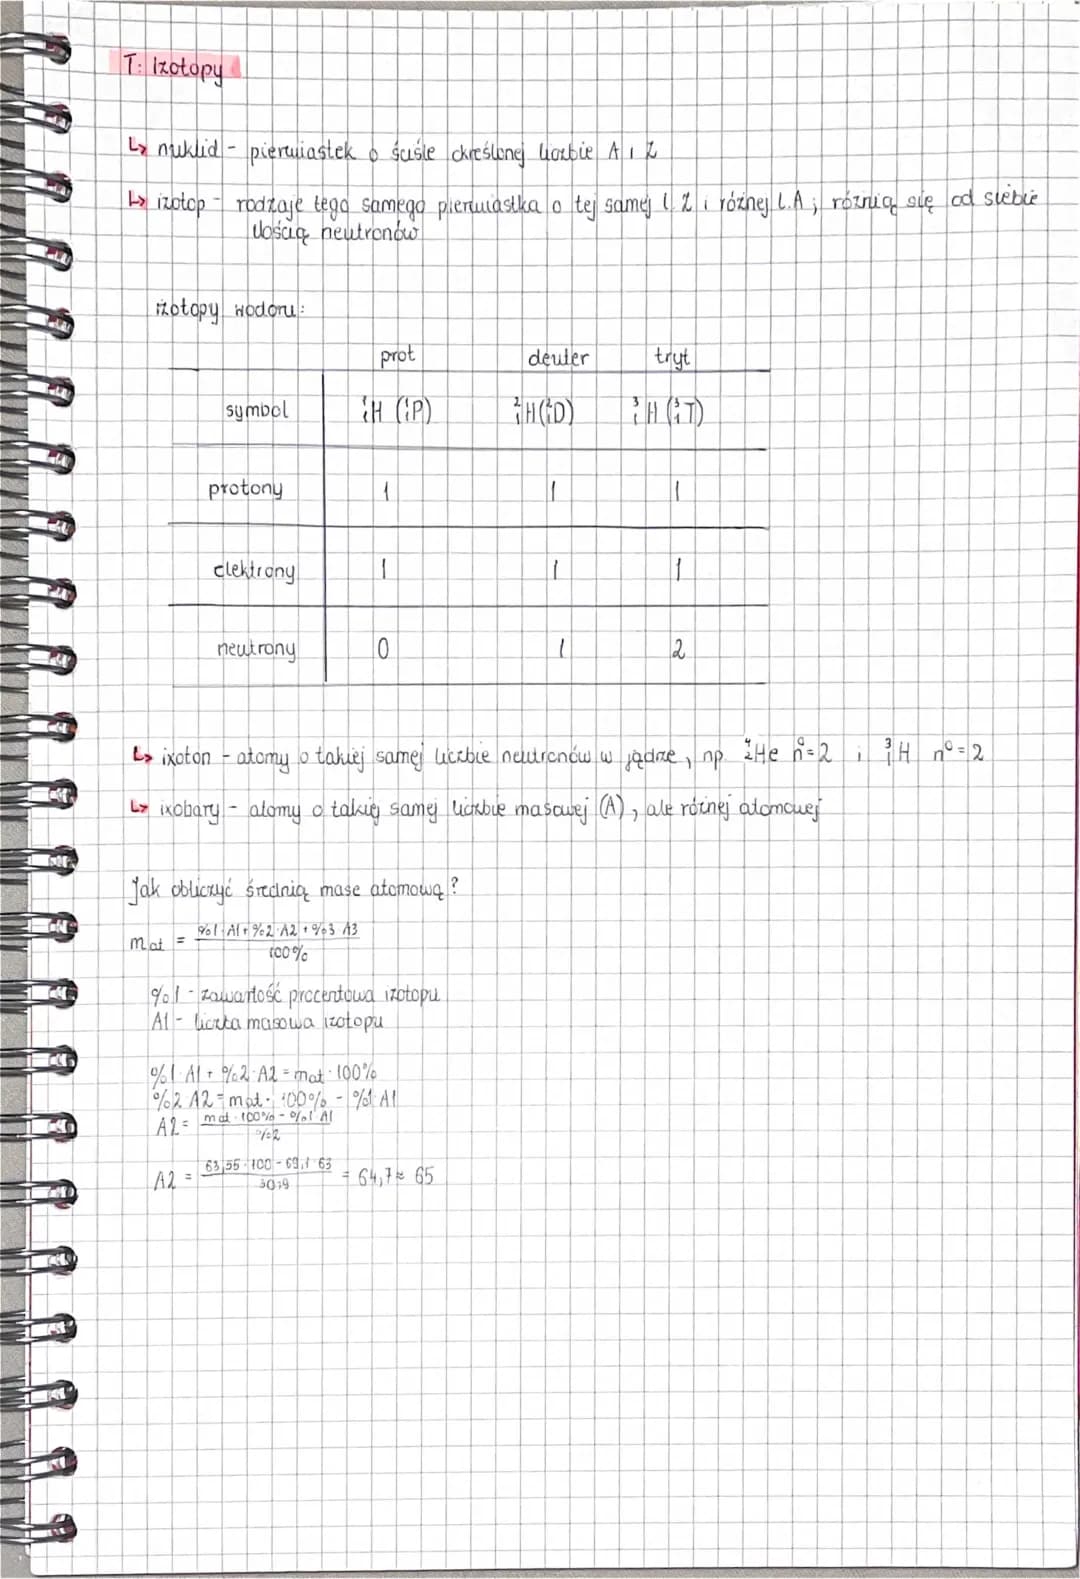 T: Izotopy
↳ nuklid - pierwiastek o ściśle określonej liczbie A i Z
↳ izotop - rodzaje tego samego pierwiastka o tej samej l. Z i różnej l. A; różnią się od siebie
ilością neutronów
izotopy wodoru:
prot deuter tryt
symbol ¹₁H (¹₁P) ²₁H (²₁D) ³₁H (³₁T)
protony 1 1 1
elektrony 1 1 1
neutrony 0 1 2
↳ izoton - atomy o takiej samej liczbie neutronów w jądrze, np. ⁴₂He n⁰=2 i ³₁H n⁰=2
↳ izobary - atomy o takiej samej liczbie masowej (A), ale różnej atomowej
Jak obliczyć średnią mase atomową?
mat = %1·A1+%2·A2+%3·A3
100%
%1 - zawartość procentowa izotopu
A1 - liczba masowa izotopu
%1·A1 + %2·A2 = mat·100%
%2·A2 = mat·100% - %1·A1
A2 = mat·100% - %1·A1
%2
A2 = 63,55·100 - 69,1·63 = 64,7 ≈ 65
30,9